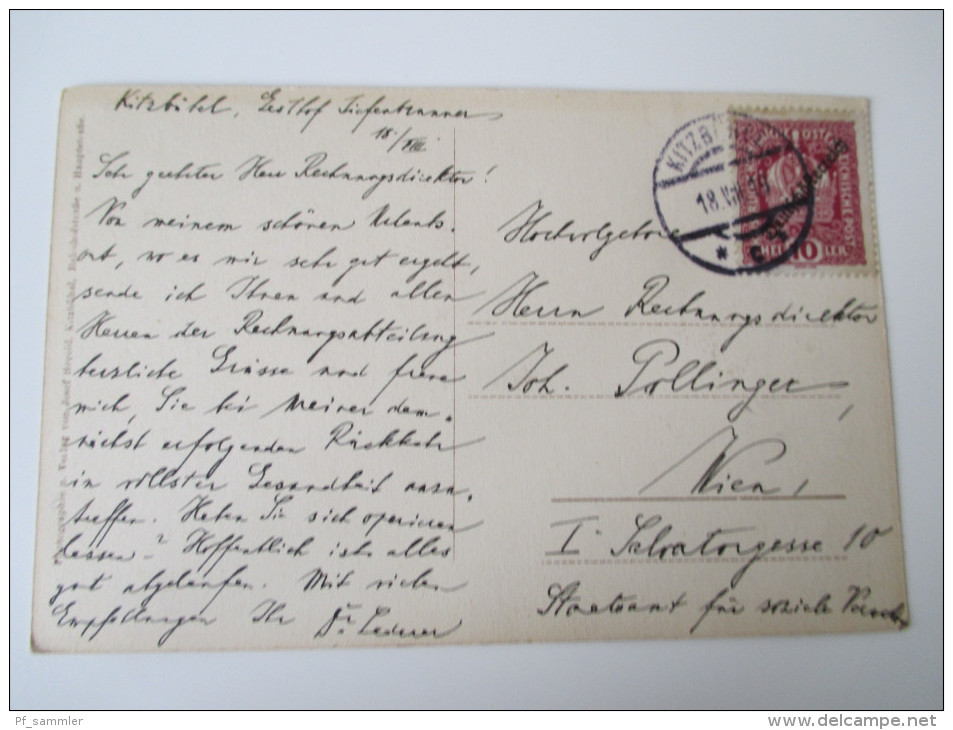 Kitzbühel, Gasthof Tiefenbrunner
18/VIII
Sehr geehrter Herr Rechnungsdirektor!
Von meinem schönen Urlaubs-
ort, wo es mir sehr gut ergeht,
sende ich Ihnen und allen
Herren der Rechnungsabteilung
herzliche Grüsse und freue
mich, Sie bei meiner dem-
nächst erfolgenden Rückkehr
in vollster Gesundheit anzu-
treffen. Haben Sie sich operieren
lassen? Hoffentlich ist alles
gut abgelaufen. Mit vielen
Empfehlungen Ihr Dr. Lederer
Hochwolgeboren
Herrn Rechnungsdirektor
Joh. Pollinger,
Wien,
I Salvatorgasse 10
Staatsamt für soziale
KITZB
18.VIII.19
Deutschösterreich
HELLER
10
Photographie u. Verlag von Josef Kitzbühel, u. Hauptstraße.
Pf_sammler
www.delcampe.net